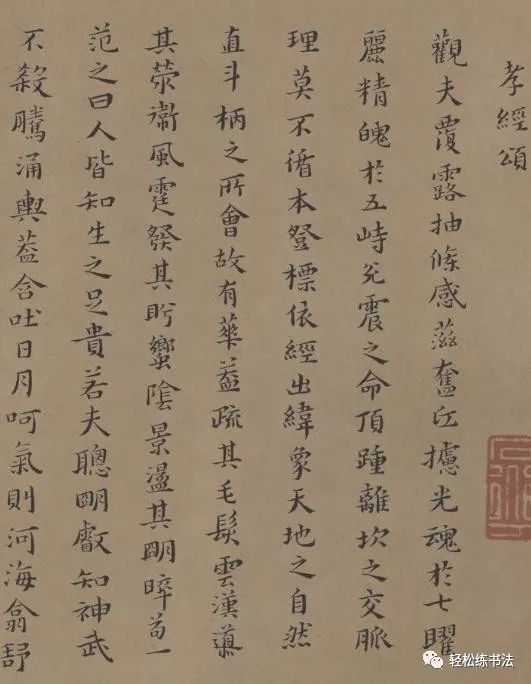 孝經頌
觀夫覆露抽條感滋奮攄光魂於七曜
麗精魄於五峙兌震之命頂踵離坎之交脈
理莫不循本登標依經出緯象天地之自然
直斗柄之所會故有華葢疏其毛髮雲漢
其滎衞風霆發其盻蠁陰景盪其眀晬
范之曰人皆知生之足貴若夫聰眀叡知神武
不殺騰涌輿葢含吐日月呵氣則河海翕舒
轻松练书法